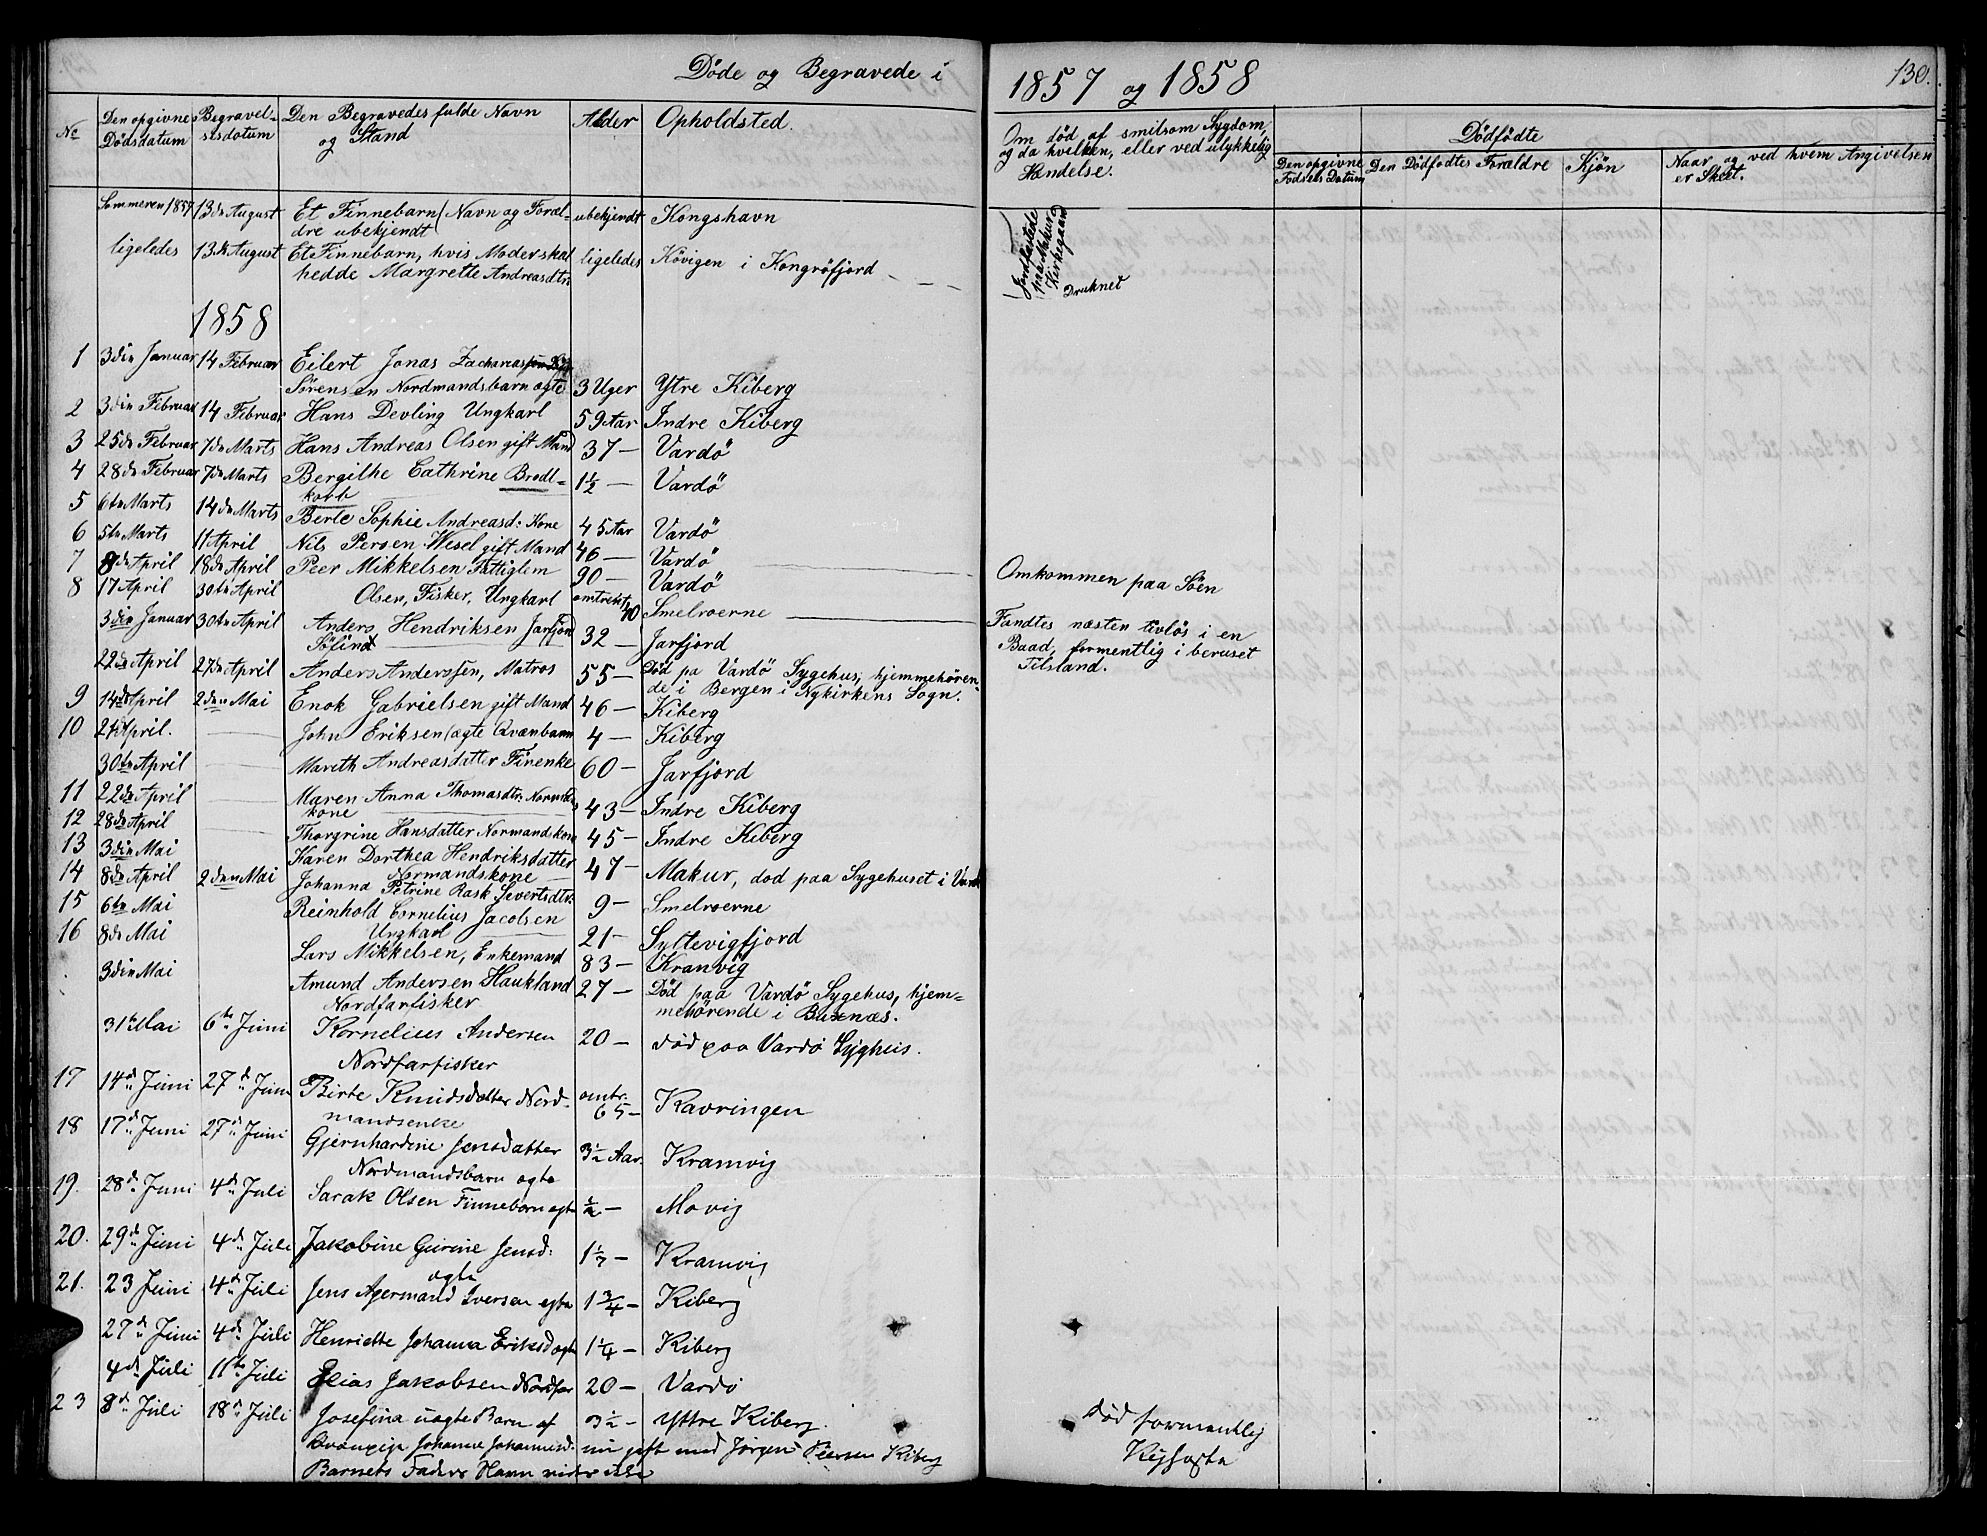 Døde og Begravede i 1857 og 1858
130.
No
Den opgivne Dødsdatum
Begravelsesdatum
Den Begravedes fulde Navn og Stand
Alder
Opholdsted.
Om død af smitsom Sygdom, og da hvilken, eller ved ulykkelig Hændelse.
Dødfødte
Den opgivne Fødsels Datum
Den Dødfødtes Forældre
Kjön
Naar og ved hvem Angivelsen er Skeet.
Sommeren 1857 13de August Et Finnebarn (Navn og Foræl- ubekjendt Kongshavn
dre ubekjendt
ligeledes 13de August Et Finnebarn, hvis Moder skal ligeledes Kövigen i Kongröfjord
hedde Margrethe Andreasdtr.
Jordfæstede paa Makur Kirkegaard
Druknet
1858
1 3die Januar 14 Februar Eilert Jonas Zacharias
Sørensen Nordmandsbarn ægte 3 Uger Ytre Kiberg
2 3die Februar 14 Februar Hans Devling Ungkarl 59 Aar Indre Kiberg
3 25de Februar 7de Marts Hans Andreas Olsen gift Mand 37 — Vardö
4 28de Februar 7de Marts Bergithe Cathrine Brodt- 1½ — Vardö
korb
5 6te Marts 14de Marts Berte Sophie Andreasd. Kone 45 Aar Vardö
6 5te Marts 11 April Nils Persen Wesel gift Mand 46 — Vardö
7 8de April 18de April Peer Mikkelsen Fattiglem 90 — Vardö
8 17 April 30te April Olsen, Fisker, Ungkarl omtrent 40 Smelroerne Omkommen paa Söen
3die Januar 30te April Anders Hendriksen Jarfjord
Söfind 32 — Jarfjord
Fandtes næsten livlös i en
Baad, formentlig i beruset
Tilstand.
22de April 27de April Anders Anderssen, Matros 55 — Död pa Vardö Sygehus, hjemmehören-
de i Bergen i Nykirkens Sogn.
9 14de April 2den Mai Enok Gabrielsen gift Mand 46 — Kiberg
10 24 April. John Eriksen (ægte Qvænbarn 4 — Kiberg
30te April Mareth Andreasdatter Finenke 60 — Jarfjord
11 22de April Maren Anna Thomasdtr. Normds
kone 43 — Indre Kiberg
12 28de April Thorgrine Hansdatter Normandkone 45 — Indre Kiberg
13 3die Mai Karen Dorthea Hendriksdatter
Normandskone 47 — Makur, død paa Sygehuset i Vardö
14 8de April 2den Mai Johanna Petrine Rask Sivertsdtr. 9 — Smelroerne
15 6te Mai Reinhold Cornelius Jacobsen
Ungkarl 21 — Syltevigfjord
16 8de Mai Lars Mikkelsen, Enkemand 83 — Kramvig
3die Mai Amund Andersen Haukland 27 — Död paa Vardö Sygehus, hjem-
Nordfarfisker mehörende i Buxnæs.
31te Mai 6te Juni Kornelius Andersen 20 — død paa Vardö Syghus.
Nordfarfisker
17 14de Juni 27de Juni Birte Knudsdatter Nord- omtr. 65 — Kavringen
mandsenke
18 17de Juni 27de Juni Gjernhardine Jensdatter 3½ Aar. Kramvig
Nordmandsbarn ægte
19. 28de Juni 4de Juli Sarak Olsen Finnebarn ægte ½ — Movig
20. 29de Juni 4de Juli Jakobine Gurine Jensd: 1½ — Kramvig
ægte
21. 23 Juni 4de Juli Jens Agermand Iversen ægte 1¾ — Kiberg
27de Juni 4de Juli Henriette Johanna Eriksd ægte 1¼ — Kiberg
4de Juli 11te Juli Elias Jakobsen Nordfar 20 — Vardö
23 8de Juli 18de Juli Josefina uægte Barn af 3½ — Yttre Kiberg.
Kvænpige Johanna Johannesd. nu gift med Jørgen Peersen Kiberg
Barnets Faders Navn vides ikke
død formentlig
Kighoste